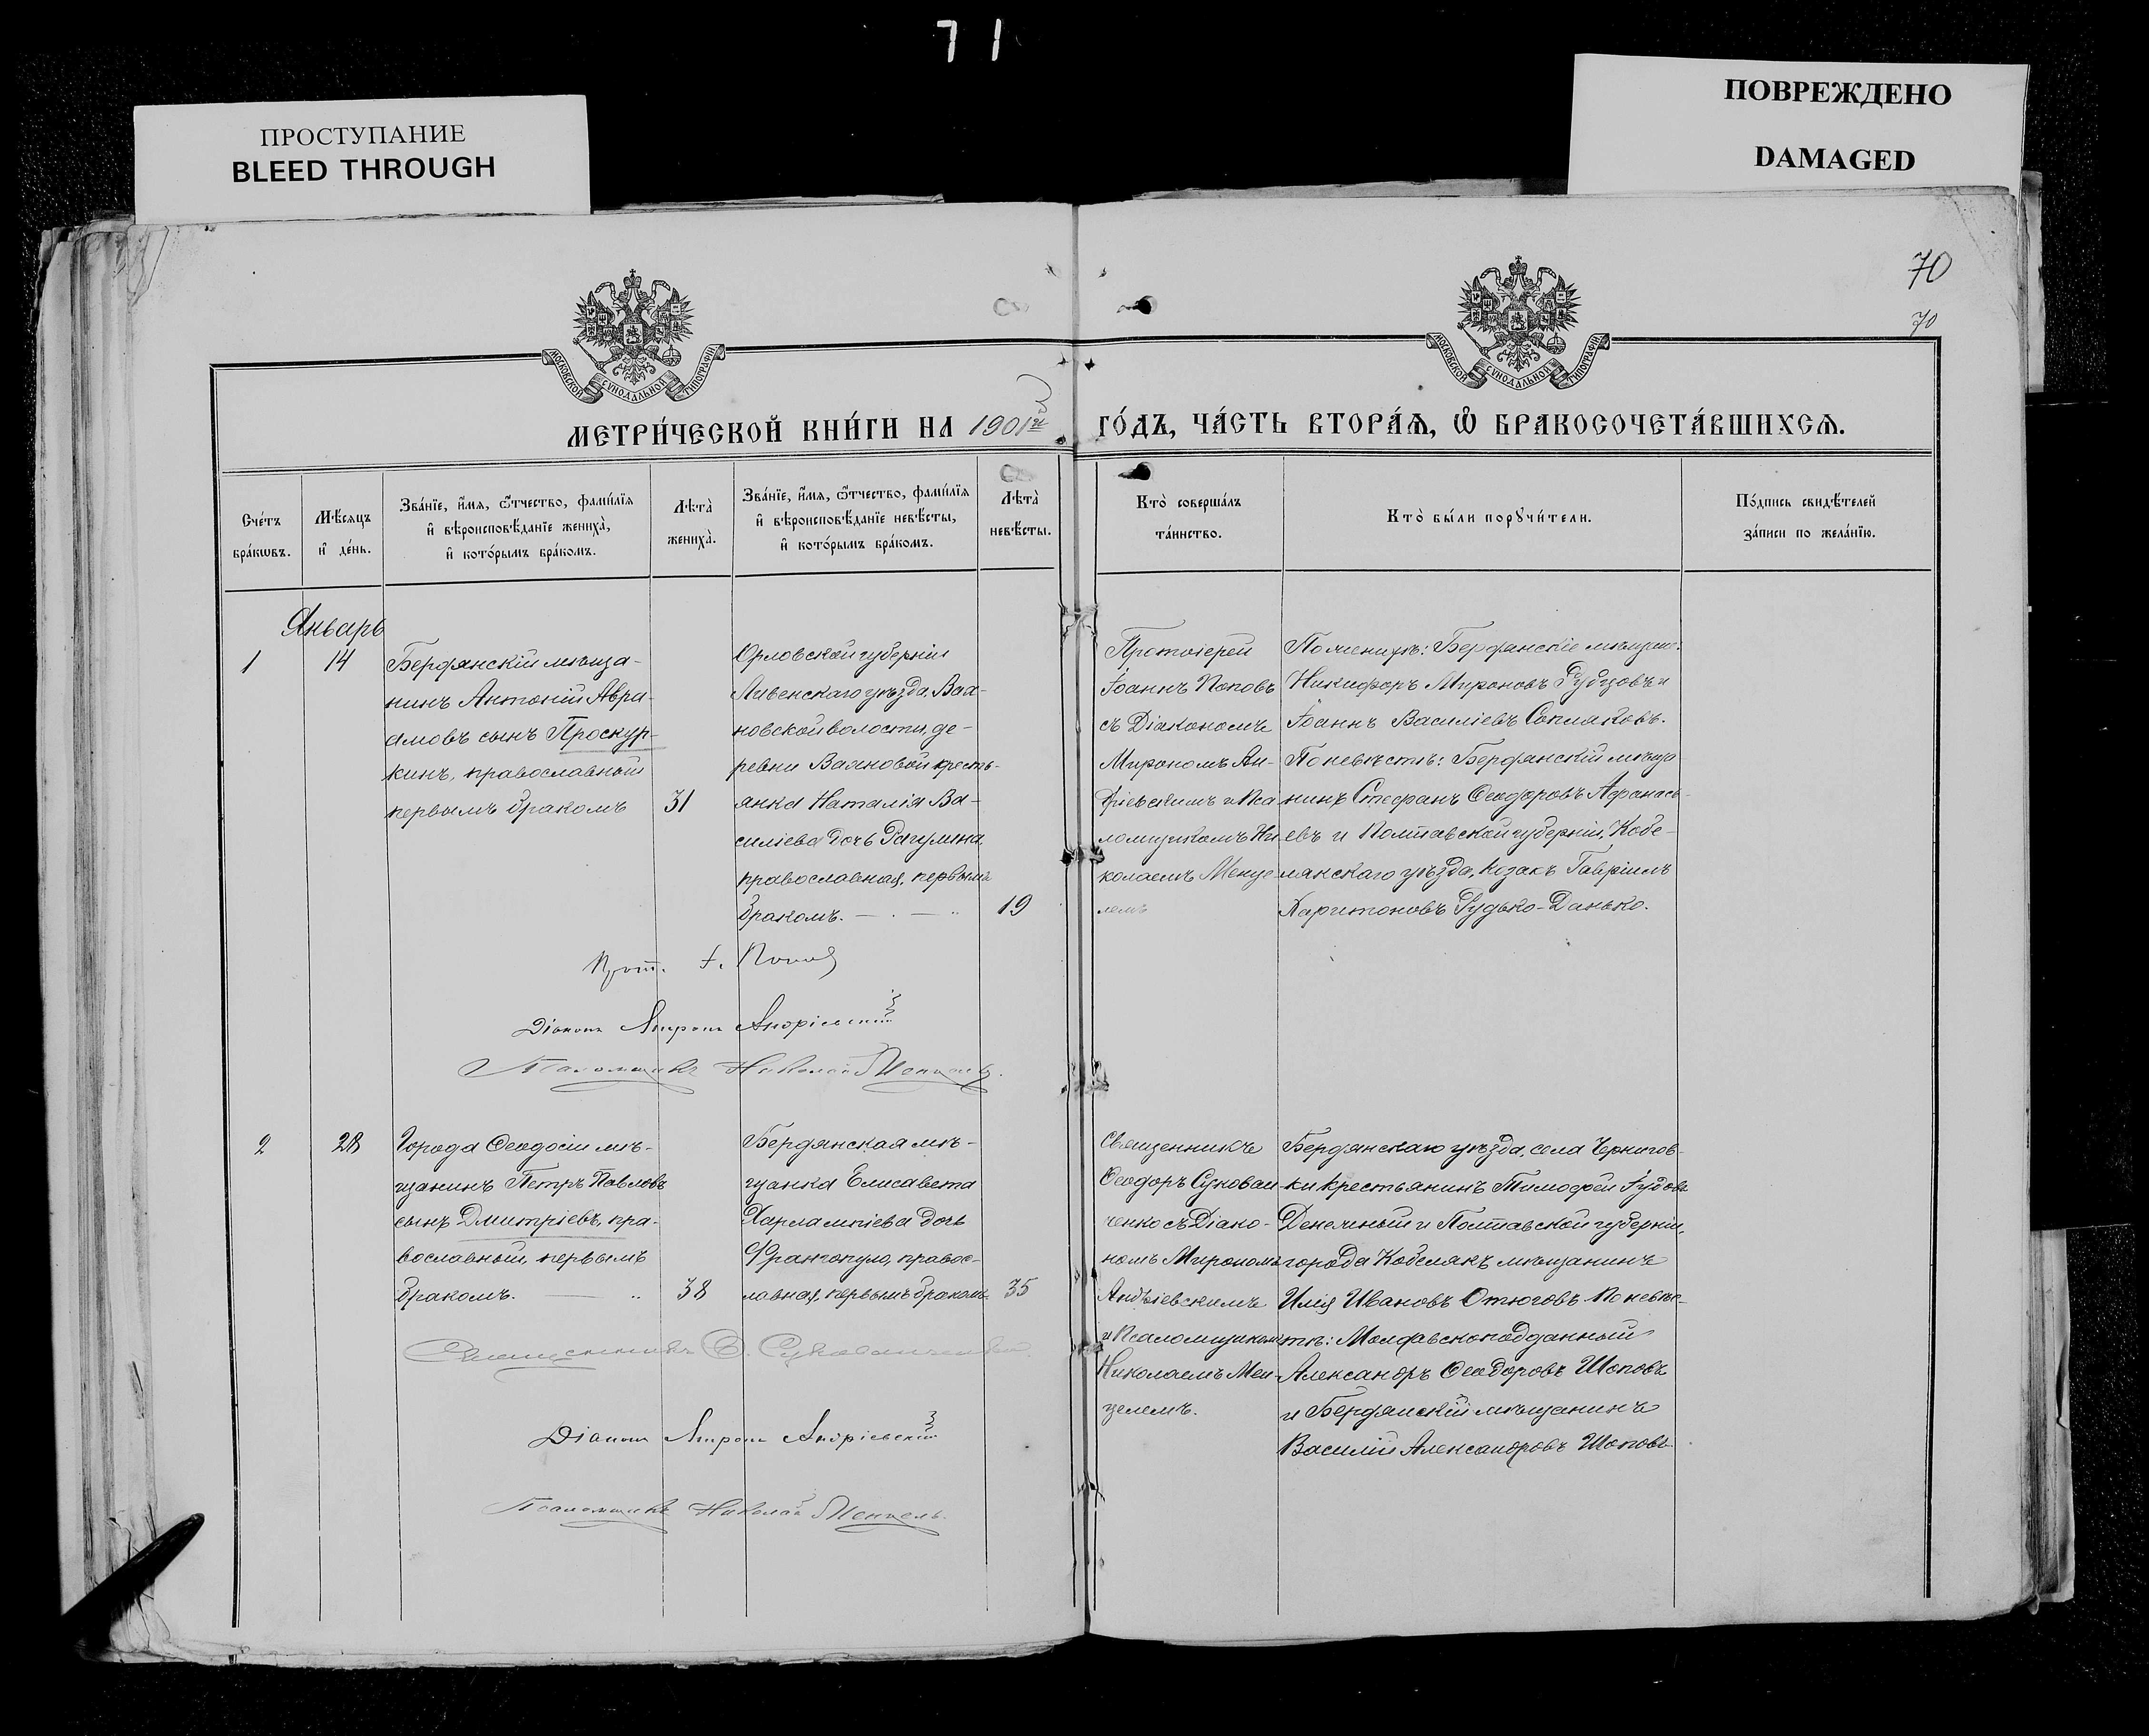 71
ПРОСТУПАНИЕ
BLEED THROUGH
ПОВРЕЖДЕНО
DAMAGED
70
70
МОСКОВСКОЙ СѴНОДАЛЬНОЙ ТИПОГРАФІИ
МОСКОВСКОЙ СѴНОДАЛЬНОЙ ТИПОГРАФІИ
МЕТРИ́ЧЕСКОЙ КНИ́ГИ НА 1901й ГО́ДЪ, ЧА́СТЬ ВТОРА́Ѧ, Ѽ БРАКОСОЧЕТА́ВШИХСѦ.
Сче́тъ
бра́кѡвъ.
Мѣ́сяцъ
и҆ де́нь.
Зва́нїе, и҆́мя, ѻ҆́тчество, фами́лїя
и҆ вѣроисповѣ́данїе жениха̀,
и҆ кото́рымъ бра́комъ.
Лѣта̀
жениха̀.
Зва́нїе, и҆́мя, ѻ҆́тчество, фами́лїя
и҆ вѣроисповѣ́данїе невѣ́сты,
и҆ кото́рымъ бра́комъ.
Лѣта̀
невѣ́сты.
Кто̀ соверша́лъ
та́инство.
Кто̀ бы́ли порꙋчи́тели.
По́дпись свидѣ́телей
за́писи по жела́нїю.
Январь
1
14
Бердянскій мѣща-
нинъ Антоній Авра-
амовъ сынъ Проскур-
кинъ, православный
первымъ бракомъ
31
Орловской губерніи
Ливенскаго уѣзда, Ваа-
новской волости, де-
ревни Ваановой кресть-
янка Наталія Ва-
силіева дочь Рагулина,
православная, первымъ
бракомъ.
19
Протоіерей
Іоаннъ Поповъ
съ Діакономъ
Мирономъ Ан-
дріевскимъ и Пса
ломщикомъ Ни-
колаемъ Менце-
лемъ
По женихѣ: Бердянскіе мѣщане:
Никифоръ Мироновъ Рубцовъ и
Іоаннъ Василіевъ Сопляковъ.
По невѣстѣ: Бердянскій мѣща
нинъ Стефанъ Ѳеодоровъ Аѳанась-
евъ и Полтавской губерніи, Кобе-
лякскаго уѣзда, козакъ Гавріилъ
Харитоновъ Рудько-Данько.
Прот. І. Поповъ
Діаконъ Миронъ Андріевскій
Псаломщикъ Николай Менцель.
2
28
Города Ѳеодосіи мѣ-
щанинъ Петръ Павловъ
сынъ Дмитріевъ, пра-
вославный, первымъ
бракомъ.
38
Бердянская мѣ-
щанка Елисавета
Харлампіева дочь
Франгопуло, правос-
лавная, первымъ бракомъ.
35
Священникъ
Ѳеодоръ Сукован-
ченко съ Діако-
номъ Мирономъ
Андріевскимъ
и Псаломщикомъ
Николаемъ Мен-
целемъ.
Бердянскаго уѣзда, села Чернигов-
ки крестьянинъ Тимоѳей Іудовъ
и Полтавской губерніи,
города Кобелякъ мѣщанинъ
Илія Ивановъ Отюговъ. По невѣс-
тѣ: Молдавскоподданный
Александръ Ѳеодоровъ Шоповъ
и Бердянскій мѣщанинъ
Василій Александровъ Шоповъ.
Священникъ Ѳ. Сукованченко.
Діаконъ Миронъ Андріевскій
Псаломщикъ Николай Менцель.